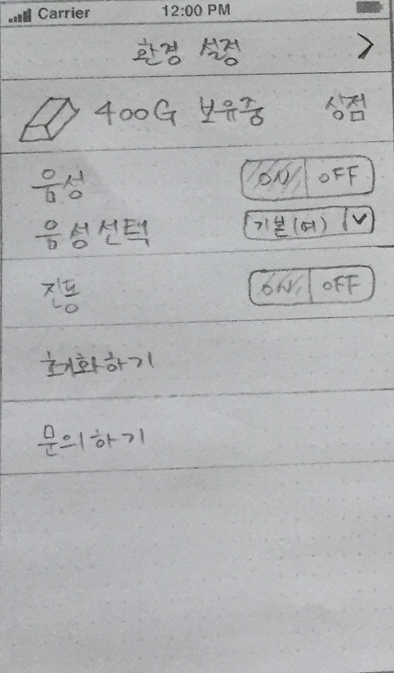 Carrier 12:00 PM
환경 설정 >
400G 보유중 상점
음성 ON OFF
음성선택 기본(여)
진동 ON OFF
초기화하기
문의하기